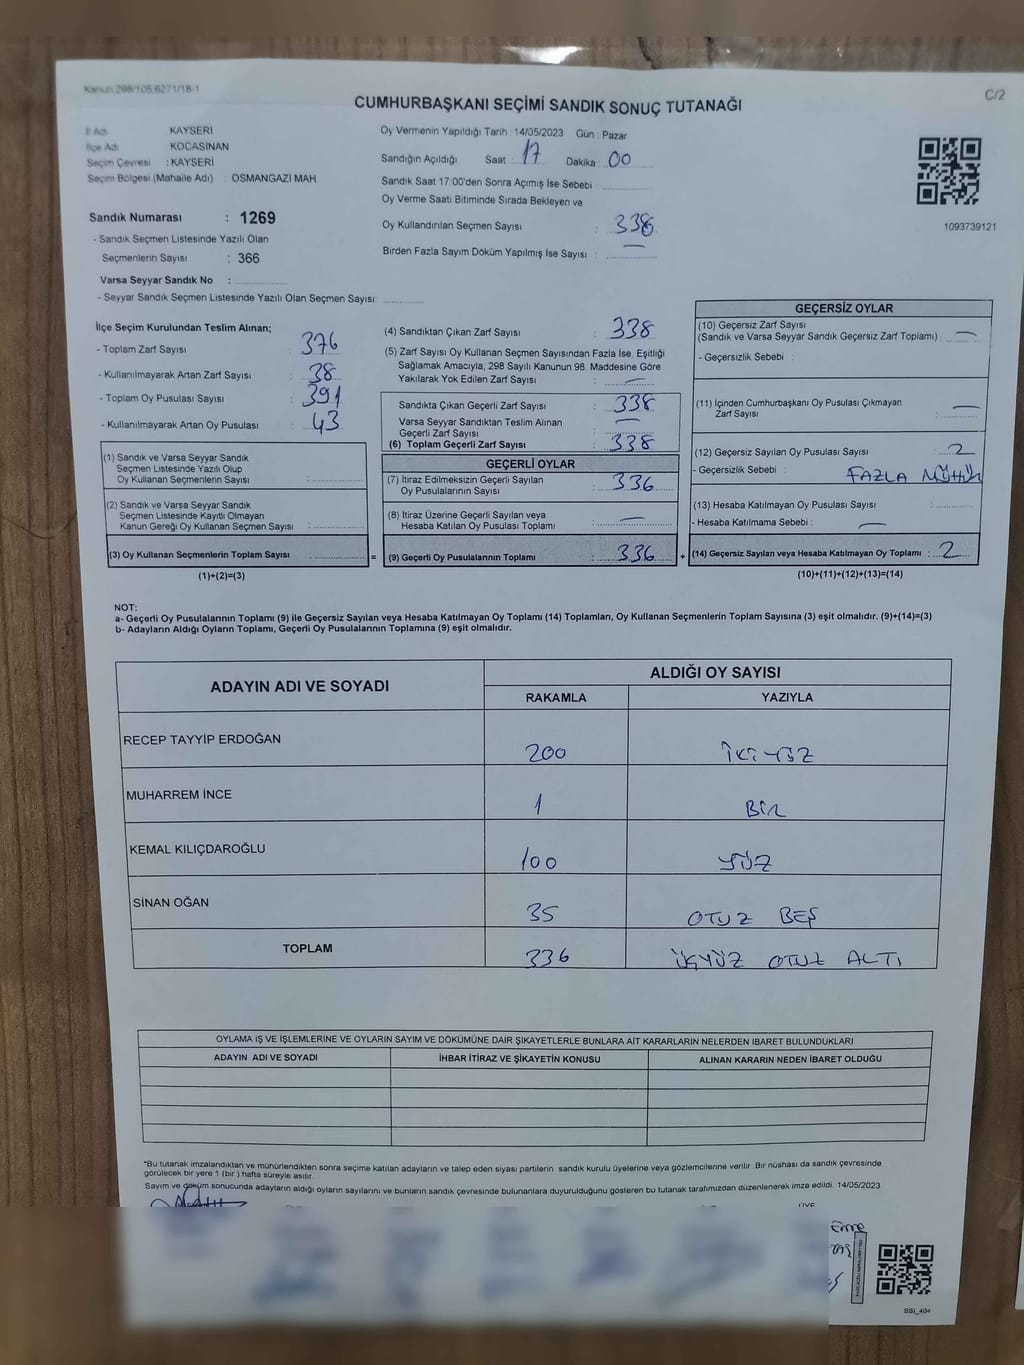 Kanun:298/105,6271/18-1
C/2
CUMHURBAŞKANI SEÇİMİ SANDIK SONUÇ TUTANAĞI
İl Adı KAYSERİ
İlçe Adı KOCASİNAN
Seçim Çevresi : KAYSERİ
Seçim Bölgesi (Mahalle Adı) : OSMANGAZİ MAH.
Sandık Numarası : 1269
- Sandık Seçmen Listesinde Yazılı Olan
Seçmenlerin Sayısı : 366
Varsa Seyyar Sandık No :
- Seyyar Sandık Seçmen Listesinde Yazılı Olan Seçmen Sayısı:
Oy Vermenin Yapıldığı Tarih : 14/05/2023 Gün : Pazar
Sandığın Açıldığı Saat : 17 Dakika : 00
Sandık Saat 17:00'den Sonra Açımış İse Sebebi :
Oy Verme Saati Bitiminde Sırada Bekleyen ve
Oy Kullandırılan Seçmen Sayısı : 338
Birden Fazla Sayım Döküm Yapılmış İse Sayısı : —
1093739121
İlçe Seçim Kurulundan Teslim Alınan;
- Toplam Zarf Sayısı : 376
- Kullanılmayarak Artan Zarf Sayısı : 38
- Toplam Oy Pusulası Sayısı : 391
- Kullanılmayarak Artan Oy Pusulası : 43
(1) Sandık ve Varsa Seyyar Sandık
Seçmen Listesinde Yazılı Olup
Oy Kullanan Seçmenlerin Sayısı :
(2) Sandık ve Varsa Seyyar Sandık
Seçmen Listesinde Kayıtlı Olmayan
Kanun Gereği Oy Kullanan Seçmen Sayısı :
(3) Oy Kullanan Seçmenlerin Toplam Sayısı : =
(1)+(2)=(3)
(4) Sandıktan Çıkan Zarf Sayısı : 338
(5) Zarf Sayısı Oy Kullanan Seçmen Sayısından Fazla İse, Eşitliği
Sağlamak Amacıyla, 298 Sayılı Kanunun 98. Maddesine Göre
Yakılarak Yok Edilen Zarf Sayısı : —
Sandıkta Çıkan Geçerli Zarf Sayısı : 338
Varsa Seyyar Sandıktan Teslim Alınan
Geçerli Zarf Sayısı : —
(6) Toplam Geçerli Zarf Sayısı : 338
GEÇERLİ OYLAR
(7) İtiraz Edilmeksizin Geçerli Sayılan
Oy Pusulalarının Sayısı : 336
(8) İtiraz Üzerine Geçerli Sayılan veya
Hesaba Katılan Oy Pusulası Toplamı : —
(9) Geçerli Oy Pusulalarının Toplamı : 336 +
GEÇERSİZ OYLAR
(10) Geçersiz Zarf Sayısı
(Sandık ve Varsa Seyyar Sandık Geçersiz Zarf Toplamı) : —
- Geçersizlik Sebebi :
(11) İçinden Cumhurbaşkanı Oy Pusulası Çıkmayan
Zarf Sayısı : —
(12) Geçersiz Sayılan Oy Pusulası Sayısı : 2
- Geçersizlik Sebebi : FAZLA MÜHÜR
(13) Hesaba Katılmayan Oy Pusulası Sayısı :
- Hesaba Katılmama Sebebi : —
(14) Geçersiz Sayılan veya Hesaba Katılmayan Oy Toplamı : 2
(10)+(11)+(12)+(13)=(14)
NOT:
a- Geçerli Oy Pusulalarının Toplamı (9) ile Geçersiz Sayılan veya Hesaba Katılmayan Oy Toplamı (14) Toplamları, Oy Kullanan Seçmenlerin Toplam Sayısına (3) eşit olmalıdır. (9)+(14)=(3)
b- Adayların Aldığı Oyların Toplamı, Geçerli Oy Pusulalarının Toplamına (9) eşit olmalıdır.
ADAYIN ADI VE SOYADI
ALDIĞI OY SAYISI
RAKAMLA YAZIYLA
RECEP TAYYİP ERDOĞAN 200 İKİ YÜZ
MUHARREM İNCE 1 BİR
KEMAL KILIÇDAROĞLU 100 YÜZ
SİNAN OĞAN 35 OTUZ BEŞ
TOPLAM 336 ÜÇYÜZ OTUZ ALTI
OYLAMA İŞ VE İŞLEMLERİNE VE OYLARIN SAYIM VE DÖKÜMÜNE DAİR ŞİKAYETLERLE BUNLARA AİT KARARLARIN NELERDEN İBARET BULUNDUKLARI
ADAYIN ADI VE SOYADI İHBAR İTİRAZ VE ŞİKAYETİN KONUSU ALINAN KARARIN NEDEN İBARET OLDUĞU
*Bu tutanak imzalandıktan ve mühürlendikten sonra seçime katılan adayların ve talep eden siyasi partilerin sandık kurulu üyelerine veya gözlemcilerine verilir. Bir nüshası da sandık çevresinde
görülecek bir yere 1 (bir) hafta süreyle asılır.
Sayım ve döküm sonucunda adayların aldığı oyların sayılarını ve bunların sandık çevresinde bulunanlara duyurulduğunu gösteren bu tutanak tarafımızdan düzenlenerek imza edildi. 14/05/2023
ÜYE
SSI_404